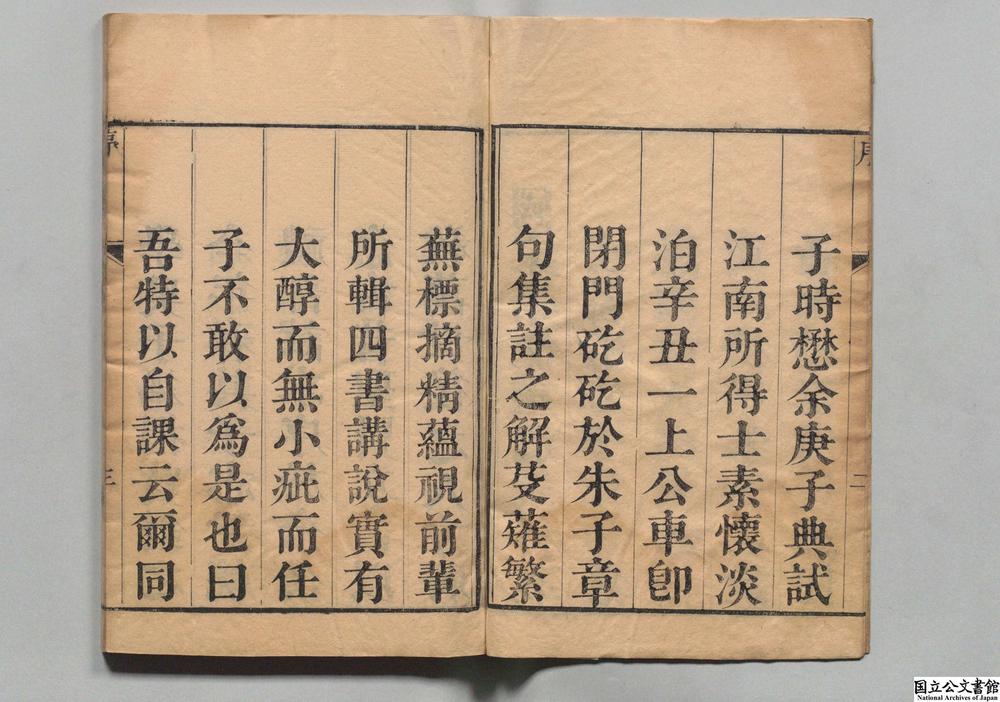 子時懋余庚子典試
江南所得士素懷淡
泊辛丑一上公車卽
閉門矻矻於朱子章
句集註之解芟薙繁
蕪標摘精蘊視前輩
所輯四書講說實有
大醇而無小疵而任
子不敢以爲是也曰
吾特以自課云爾同
序
三
国立公文書館
National Archives of Japan